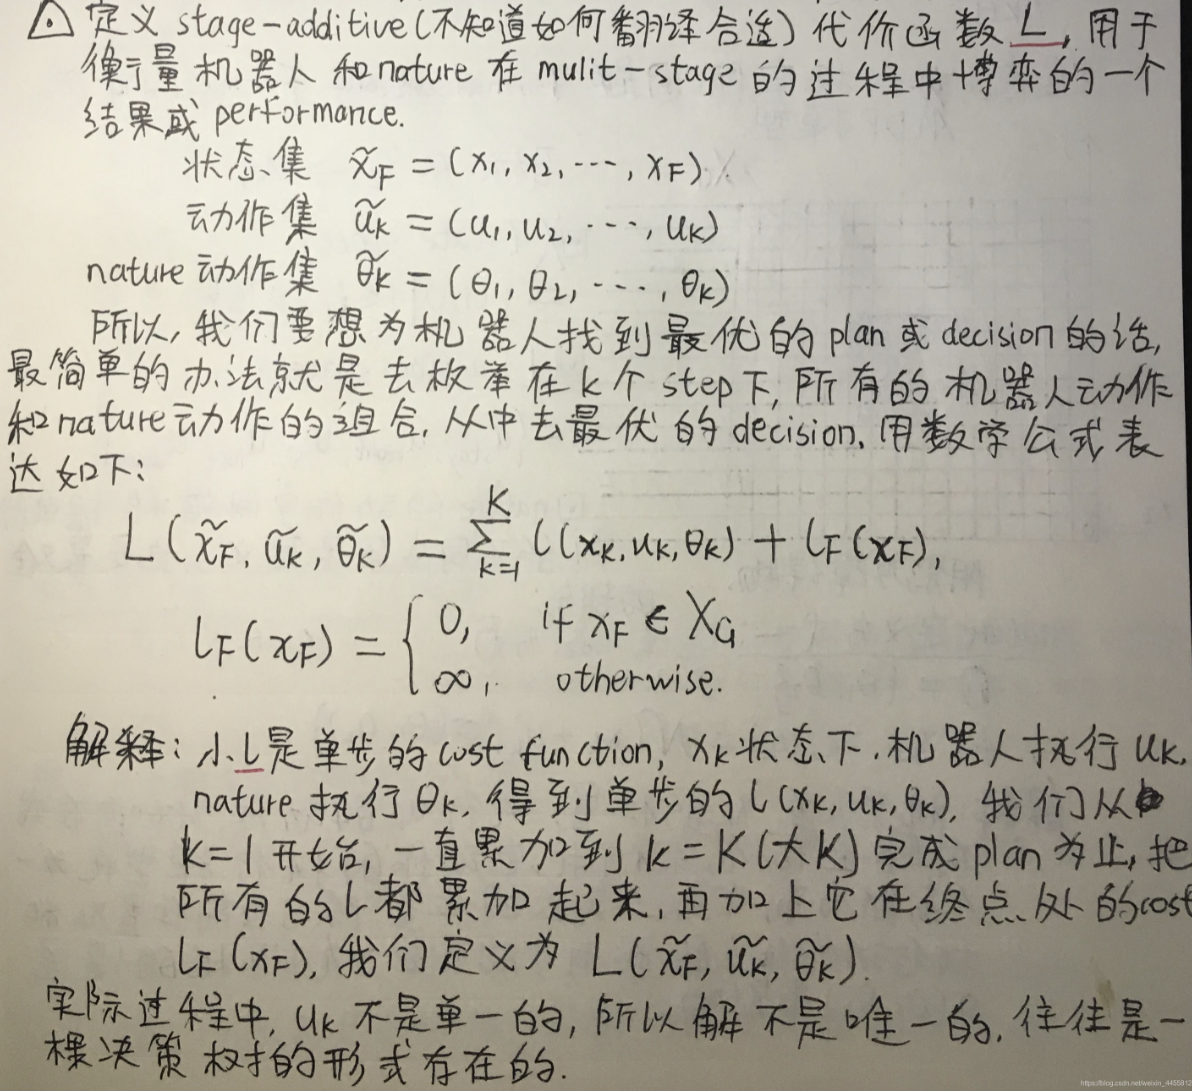 定义 stage-additive(不知道如何翻译合适)代价函数 L, 用于
衡量机器人和nature 在 mulit-stage 的过程中博弈的一个
结果或 performance.
状态集 x̃F = (x1, x2, ···, xF).
动作集 ũK = (u1, u2, ···, uK)
nature 动作集 θ̃K = (θ1, θ2, ···, θK)
所以, 我们要想为机器人找到最优的 plan 或 decision 的话,
最简单的办法就是去枚举在 K 个 step 下, 所有的机器人动作
和 nature 动作的组合, 从中去最优的 decision. 用数学公式表
达如下:
L(x̃F, ũK, θ̃K) = ∑_{k=1}^{K} l(xk, uk, θk) + lF(xF),
lF(xF) = { 0, if xF ∈ XG
∞, otherwise.
解释: 小l是单步的 cost function, xk 状态下, 机器人执行 uk,
nature 执行 θk, 得到单步的 l(xk, uk, θk), 我们从
k=1 开始, 一直累加到 k=K(大K) 完成 plan 为止, 把
所有的 l 都累加起来, 再加上它在终点处的 cost
lF(xF), 我们定义为 L(x̃F, ũK, θ̃K).
实际过程中, uk 不是单一的, 所以解不是唯一的, 往往是一
棵决策树的形式存在的.